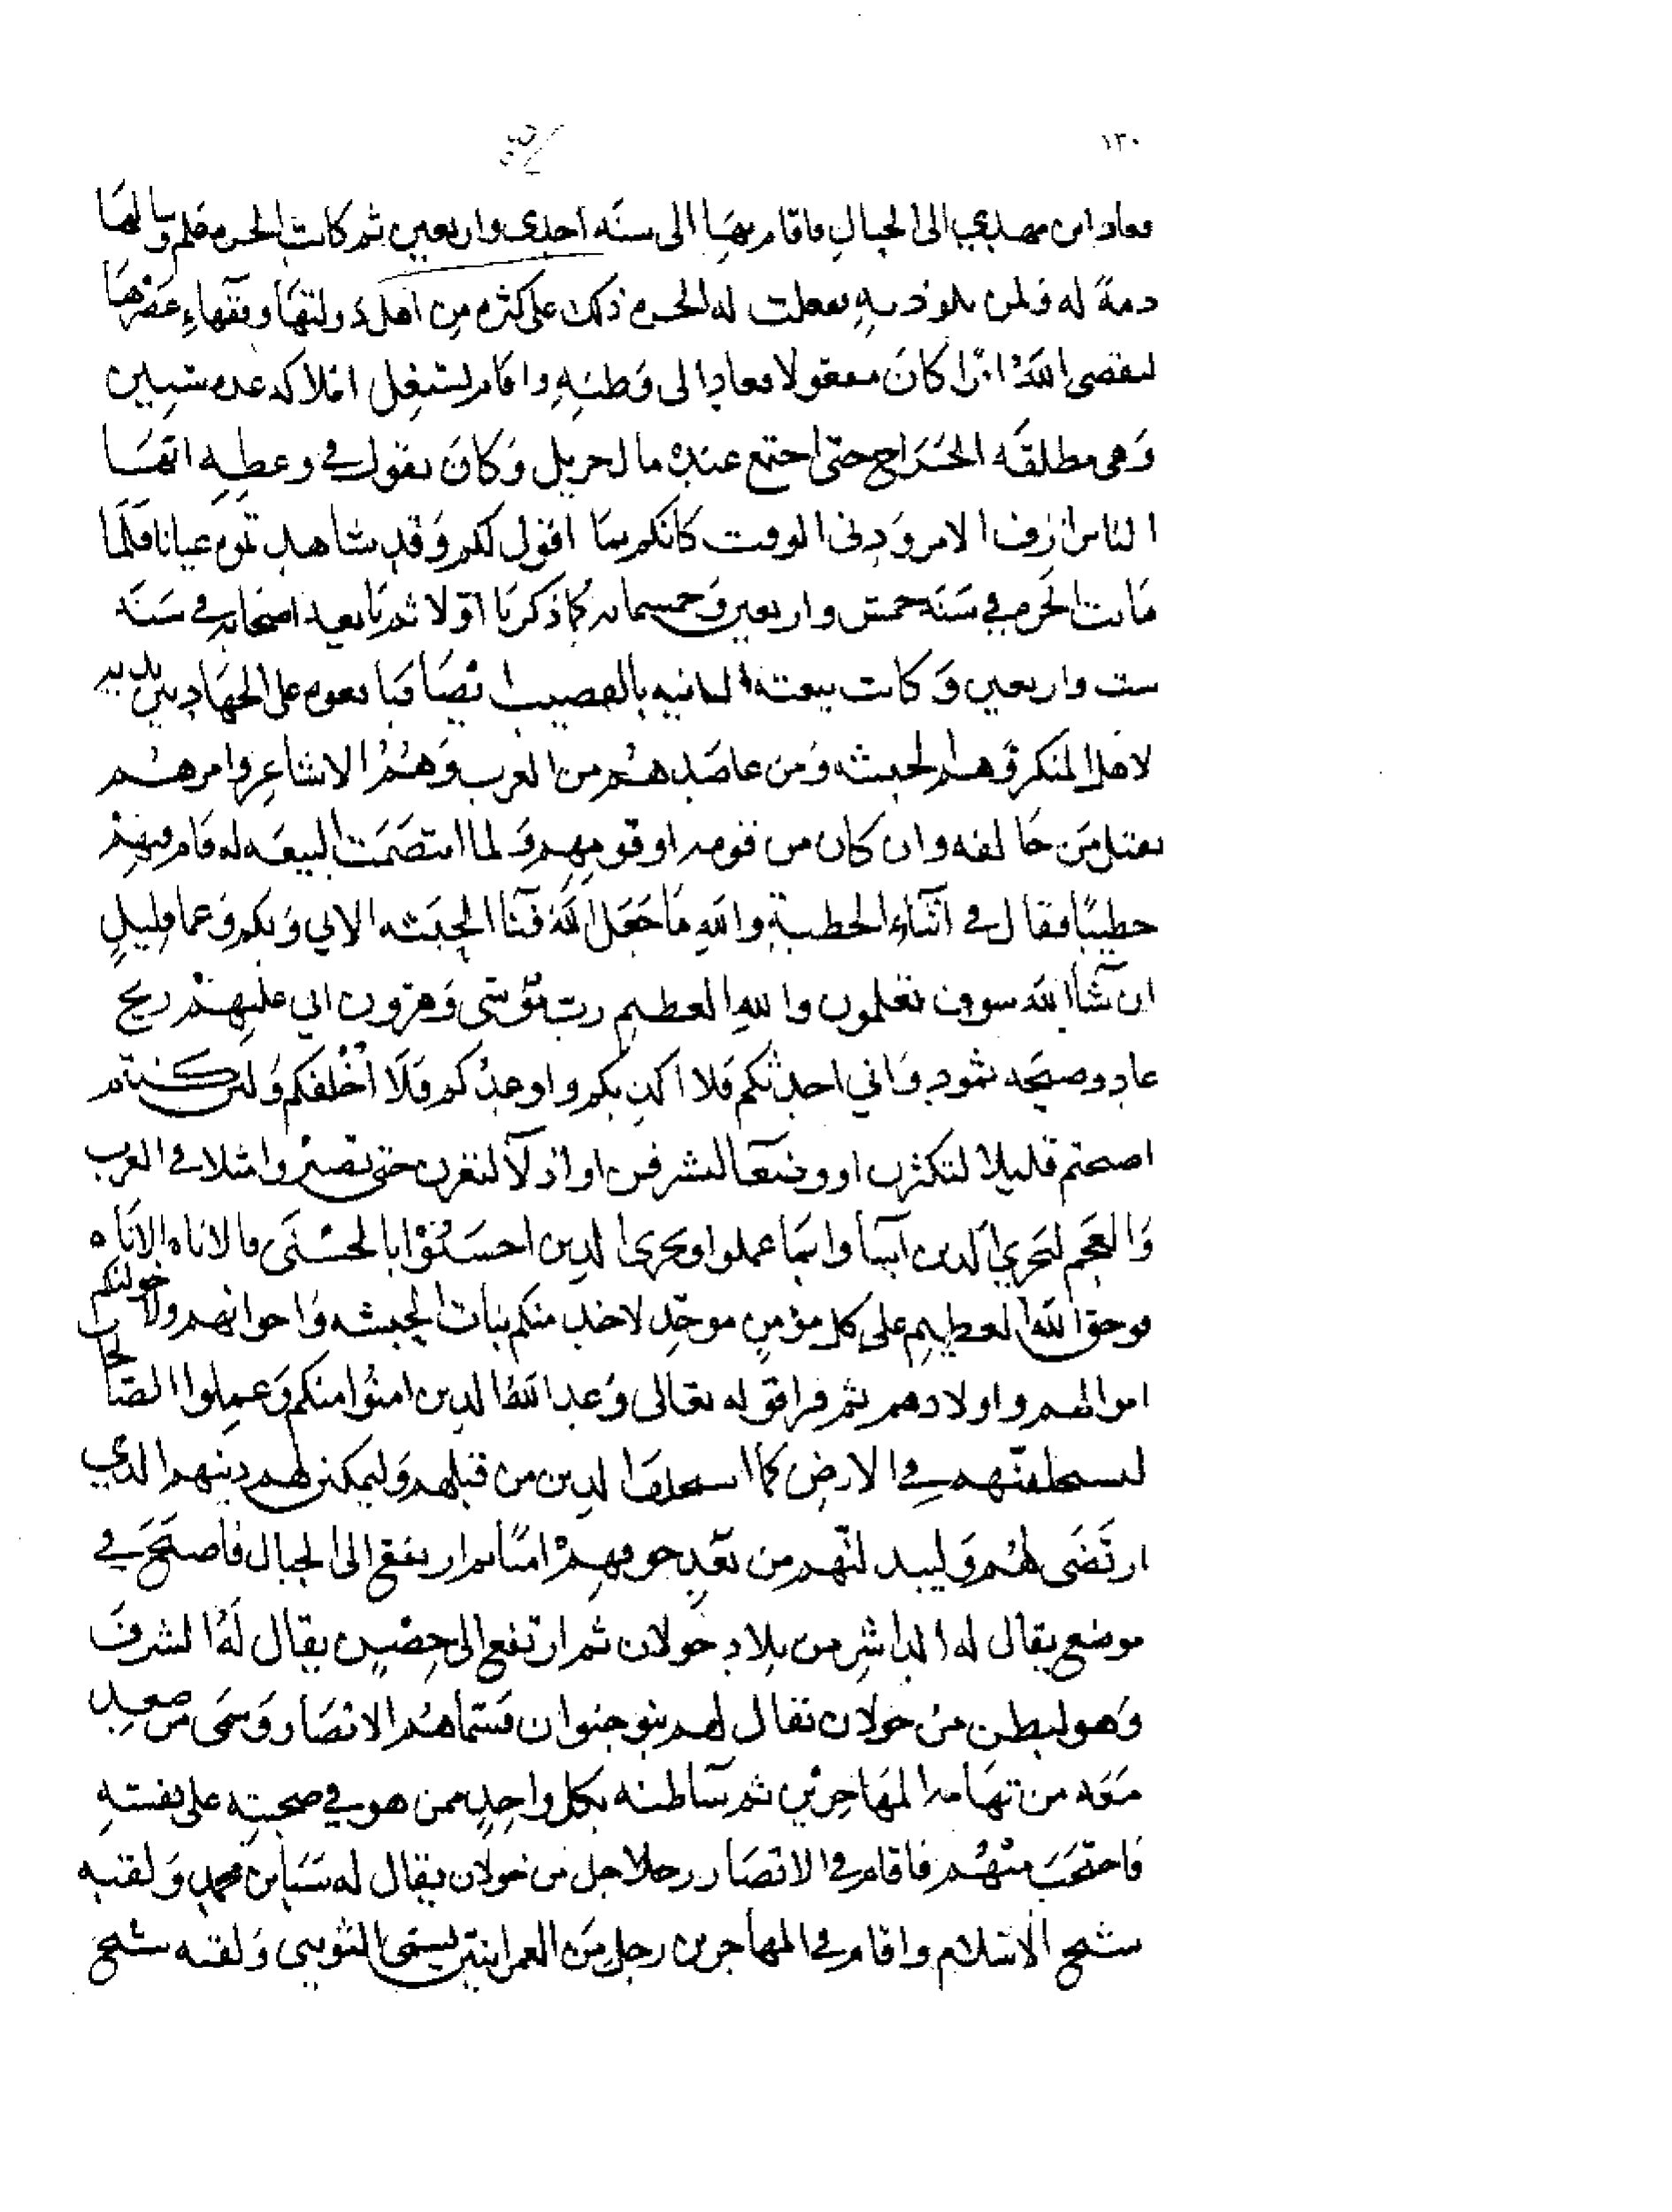 ١٣٠
فعاد ابن مهدي الى الجبال فاقام بها الى سنه احدى واربعين ثم كاتب الحره فسالها
دمة له ولمن يلوذ به ففعلت له الحره ذلك على كثره من اهل دولتها وفقهاء عصرها
ليقضي الله امرا كان مفعولا فعاد الى وطنه واقام يستغل املاكه عده سنين
وهي مطلقه الخراج حتى اجتمع عنده مال جزيل وكان يقول في وعظه ايها
الناس ازف الامر ودنى الوقت كانكم بما اقول لكم وقد شاهدتموه عيانا فلما
ماتت الحره في سنه خمس واربعين وخمسمايه كما ذكرنا اولا ثم بايعه اصحابه في سنه
ست واربعين وكانت بيعته الثانيه بالقصيب ايضا فبايعوه على الجهاد بين يديه
لاهل المنكر وهم الحبشه ومن عاضدهم من العرب وهم الاشاعر وامرهم
بقتل من خالفه وان كان من قومه او قومهم ولما البيعه له قام فيهم
خطيبا فقال في اثناء الخطبة والله ما جعل الله فنا الحبشه الا بي وبكم وعما قليل
ان شا الله سوف تعلمون والله العظيم رب موسى وهرون اني عليهم ريح
عاد وصيحه ثمود واني احدثكم فلا اكذبكم واوعدكم فلا اخلفكم ولئن كنتم
اصبحتم قليلا لتكثرن او وضعا لتشرفن او اذلا لتعزن حتى تصيروا مثلا في العرب
والعجم ليجزي الدين اساوا بما عملوا ويجزي الدين احسنوا بالحسنى فالاناه الاناه
فوحق الله العظيم على كل مؤمن موحد لاخدمنكم بنات الحبشه واخواتهم ولاخولنكم
اموالهم واولادهم ثم قرا قوله تعالى وعد الله الدين امنوا منكم وعملوا الصالحات
ليستخلفنهم في الارض كما استخلف الدين من قبلهم وليمكنن لهم دينهم الدي
ارتضى لهم وليبدلنهم من بعد خوفهم امنا ثم ارتفع الى الجبال فاصبح في
موضع يقال له الداشر من بلاد خولان ثم ارتفع الى حصن يقال له الشرف
وهو لبطن من خولان يقال لهم بنو حيوان فسماهم الانصار وسمى من صعد
معه من تهامه المهاجرين ثم سا ظنه بكل واحد ممن هو في صحبته على نفسه
فاحتجب منهم فاقام في الانصار رجلا جل من خولان يقال له سبا بن محمد ولقبه
شيخ الاسلام واقام في المهاجرين رجل من العمرانيين يسمى التويتي ولقبه شيخ